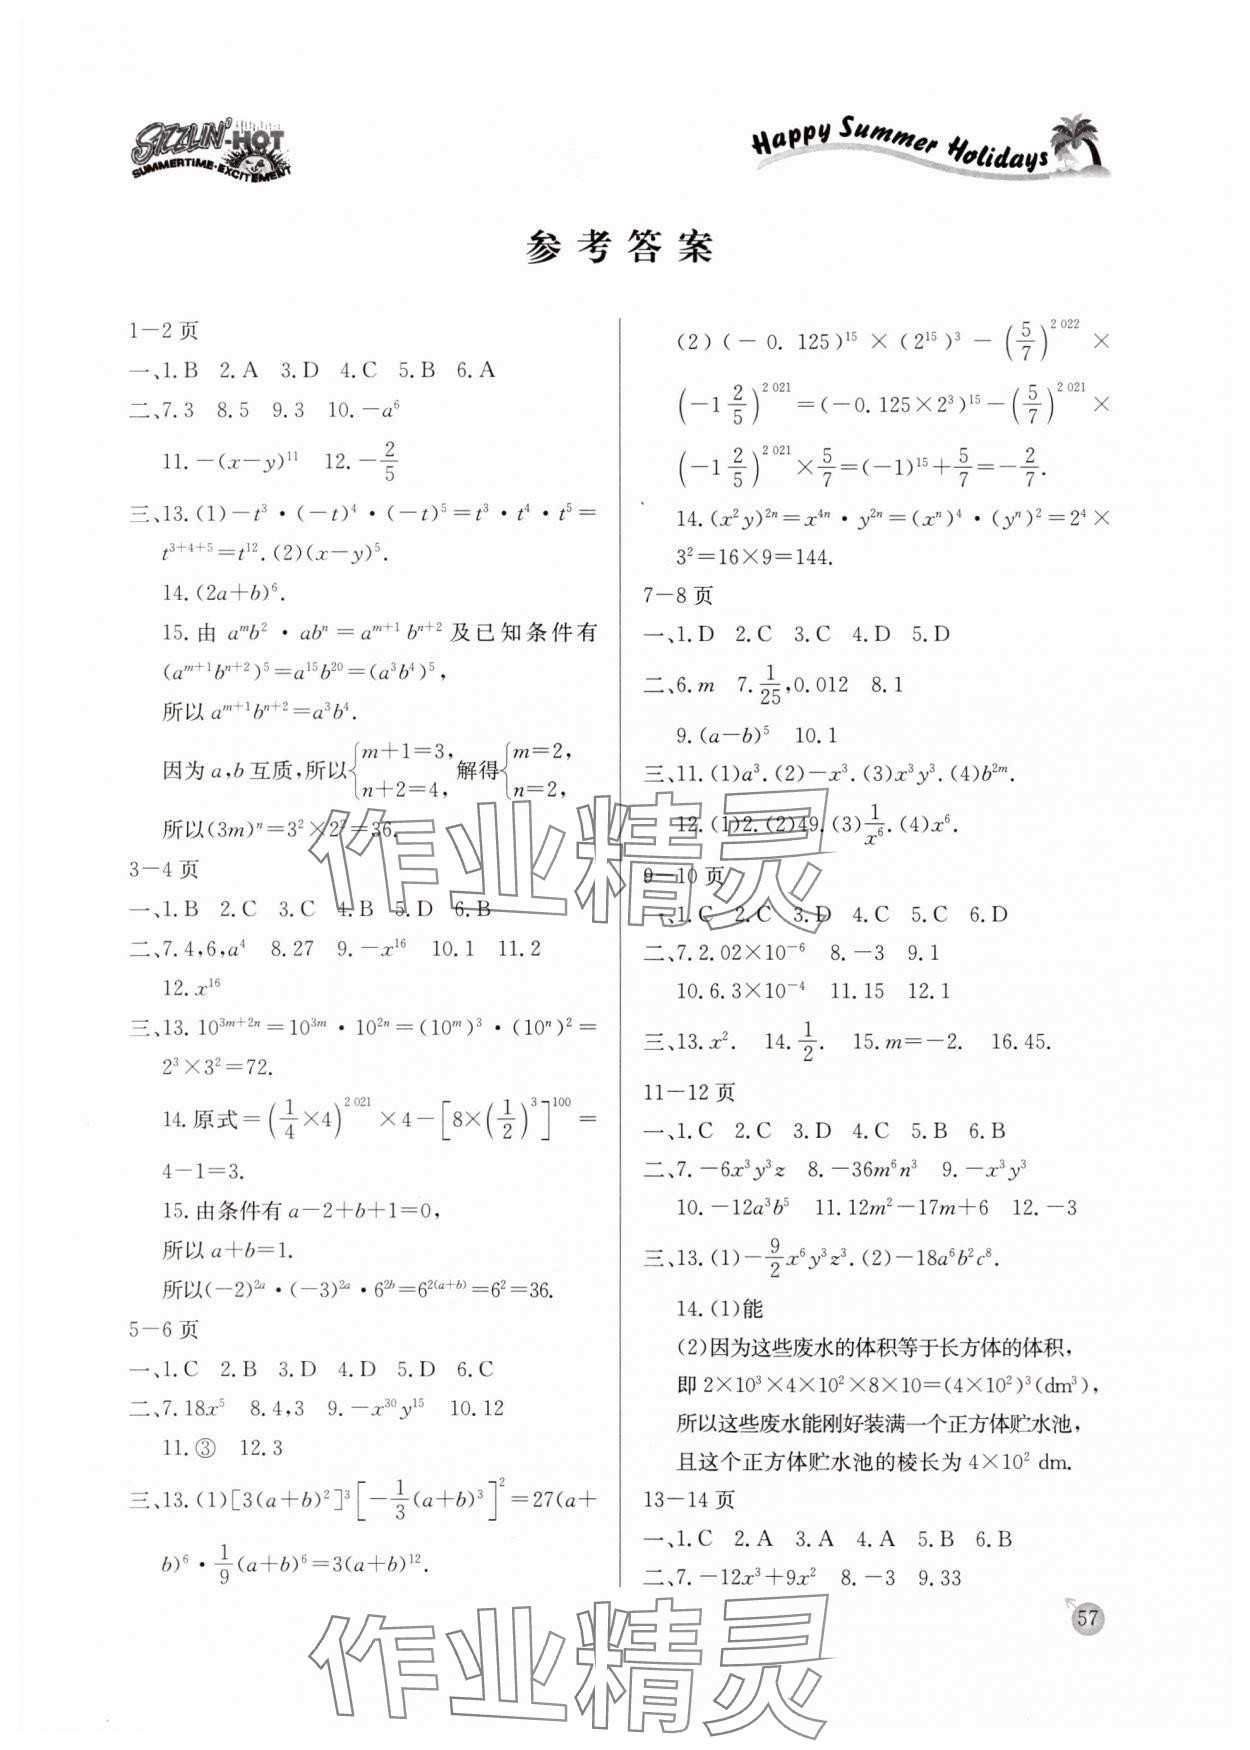 SIZZLIN' HOT
SUMMERTIME·EXCITEMENT
Happy Summer Holidays
参考答案
1—2 页
一、1. B 2. A 3. D 4. C 5. B 6. A
二、7. 3 8. 5 9. 3 10. －a⁶
11. －(x－y)¹¹ 12. －2/5
三、13. (1)－t³·(－t)⁴·(－t)⁵＝t³·t⁴·t⁵＝
t³⁺⁴⁺⁵＝t¹². (2)(x－y)⁵.
14. (2a＋b)⁶.
15. 由 aᵐb²·abⁿ＝aᵐ⁺¹bⁿ⁺² 及已知条件有
(aᵐ⁺¹bⁿ⁺²)⁵＝a¹⁵b²⁰＝(a³b⁴)⁵,
所以 aᵐ⁺¹bⁿ⁺²＝a³b⁴.
因为 a,b 互质,所以{m＋1＝3, n＋2＝4, 解得{m＝2, n＝2,
所以(3m)ⁿ＝3²×2²＝36.
3—4 页
一、1. B 2. C 3. C 4. B 5. D 6. B
二、7. 4,6,a⁴ 8. 27 9. －x¹⁶ 10. 1 11. 2
12. x¹⁶
三、13. 10³ᵐ⁺²ⁿ＝10³ᵐ·10²ⁿ＝(10ᵐ)³·(10ⁿ)²＝
2³×3²＝72.
14. 原式＝(1/4×4)^2 021×4－[8×(1/2)³]¹⁰⁰＝
4－1＝3.
15. 由条件有 a－2＋b＋1＝0,
所以 a＋b＝1.
所以(－2)^2a·(－3)^2a·6^2b＝6^2(a＋b)＝6²＝36.
5—6 页
一、1. C 2. B 3. D 4. D 5. D 6. C
二、7. 18x⁵ 8. 4,3 9. －x³⁰y¹⁵ 10. 12
11. ③ 12. 3
三、13. (1)[3(a＋b)²]³[－1/3(a＋b)³]²＝27(a＋
b)⁶·1/9(a＋b)⁶＝3(a＋b)¹².
(2)(－0.125)¹⁵×(2¹⁵)³－(5/7)^2 022×
(－1 2/5)^2 021＝(－0.125×2³)¹⁵－(5/7)^2 021×
(－1 2/5)^2 021×5/7＝(－1)¹⁵＋5/7＝－2/7.
14. (x²y)²ⁿ＝x⁴ⁿ·y²ⁿ＝(xⁿ)⁴·(yⁿ)²＝2⁴×
3²＝16×9＝144.
7—8 页
一、1. D 2. C 3. C 4. D 5. D
二、6. m 7. 1/25,0.012 8. 1
9. (a－b)⁵ 10. 1
三、11. (1)a³. (2)－x³. (3)x³y³. (4)b²ᵐ.
12. (1)2. (2)49. (3)1/x⁶. (4)x⁶.
9—10 页
一、1. C 2. C 3. D 4. C 5. C 6. D
二、7. 2.02×10⁻⁶ 8. －3 9. 1
10. 6.3×10⁻⁴ 11. 15 12. 1
三、13. x². 14. 1/2. 15. m＝－2. 16. 45.
11—12 页
一、1. C 2. C 3. D 4. C 5. B 6. B
二、7. －6x³y³z 8. －36m⁶n³ 9. －x³y³
10. －12a³b⁵ 11. 12m²－17m＋6 12. －3
三、13. (1)－9/2x⁶y³z³. (2)－18a⁶b²c⁸.
14. (1)能
(2)因为这些废水的体积等于长方体的体积,
即 2×10³×4×10²×8×10＝(4×10²)³(dm³),
所以这些废水能刚好装满一个正方体贮水池,
且这个正方体贮水池的棱长为 4×10² dm.
13—14 页
一、1. C 2. A 3. A 4. A 5. B 6. B
二、7. －12x³＋9x² 8. －3 9. 33
57
作业精灵
作业精灵